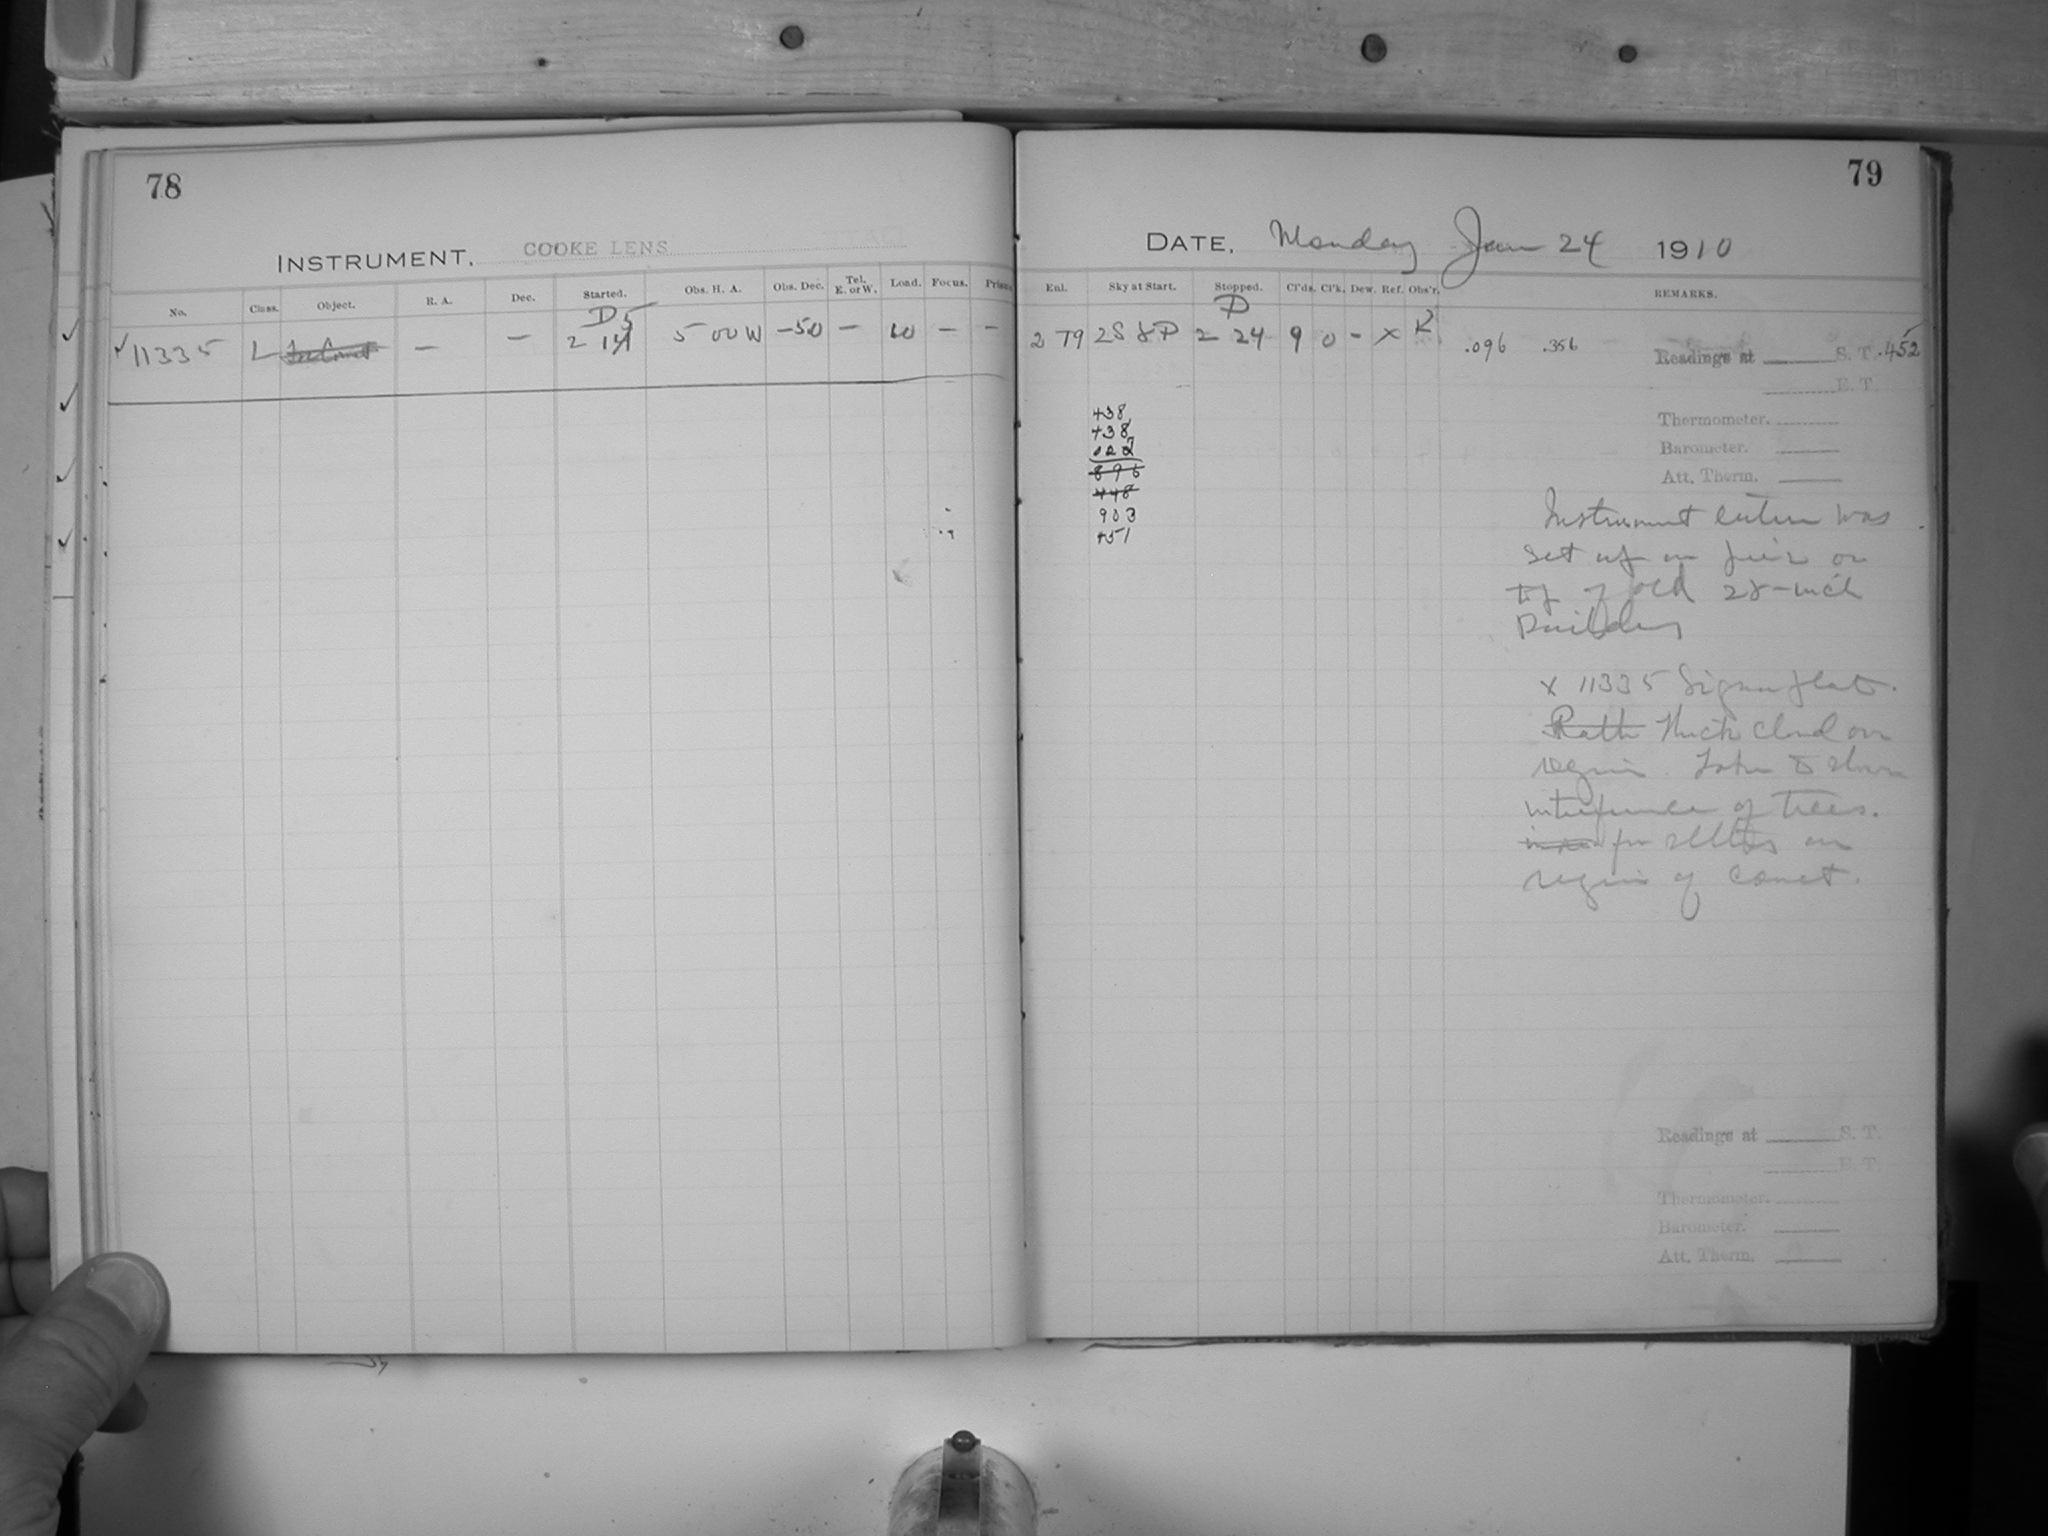 78
INSTRUMENT, COOKE LENS
No. Class. Object. R. A. Dec. Started. Obs. H. A. Obs. Dec. Tel. E. or W. Load. Focus. Prism
D 5
✓ 11335 L — — 2 5 00 W -50 — 10 — —
79
DATE, Monday Jan 24 1910
Enl. Sky at Start. Stopped. Cl'ds. Cl'k. Dew. Ref. Obs'r. REMARKS.
D
2 79 2S 2 24 9 0 - X K .096 .356 Readings at S. T. .452
E. T.
438
438
Thermometer.
Barometer.
896
Att. Therm.
448
903
451
Instrument was
set up on pier on
top of old 28-inch
Building
x 11335
Thick cloud over
region. Taken to show
interference of trees.
for on
region of Comet.
Readings at S. T.
E. T.
Thermometer.
Barometer.
Att. Therm.